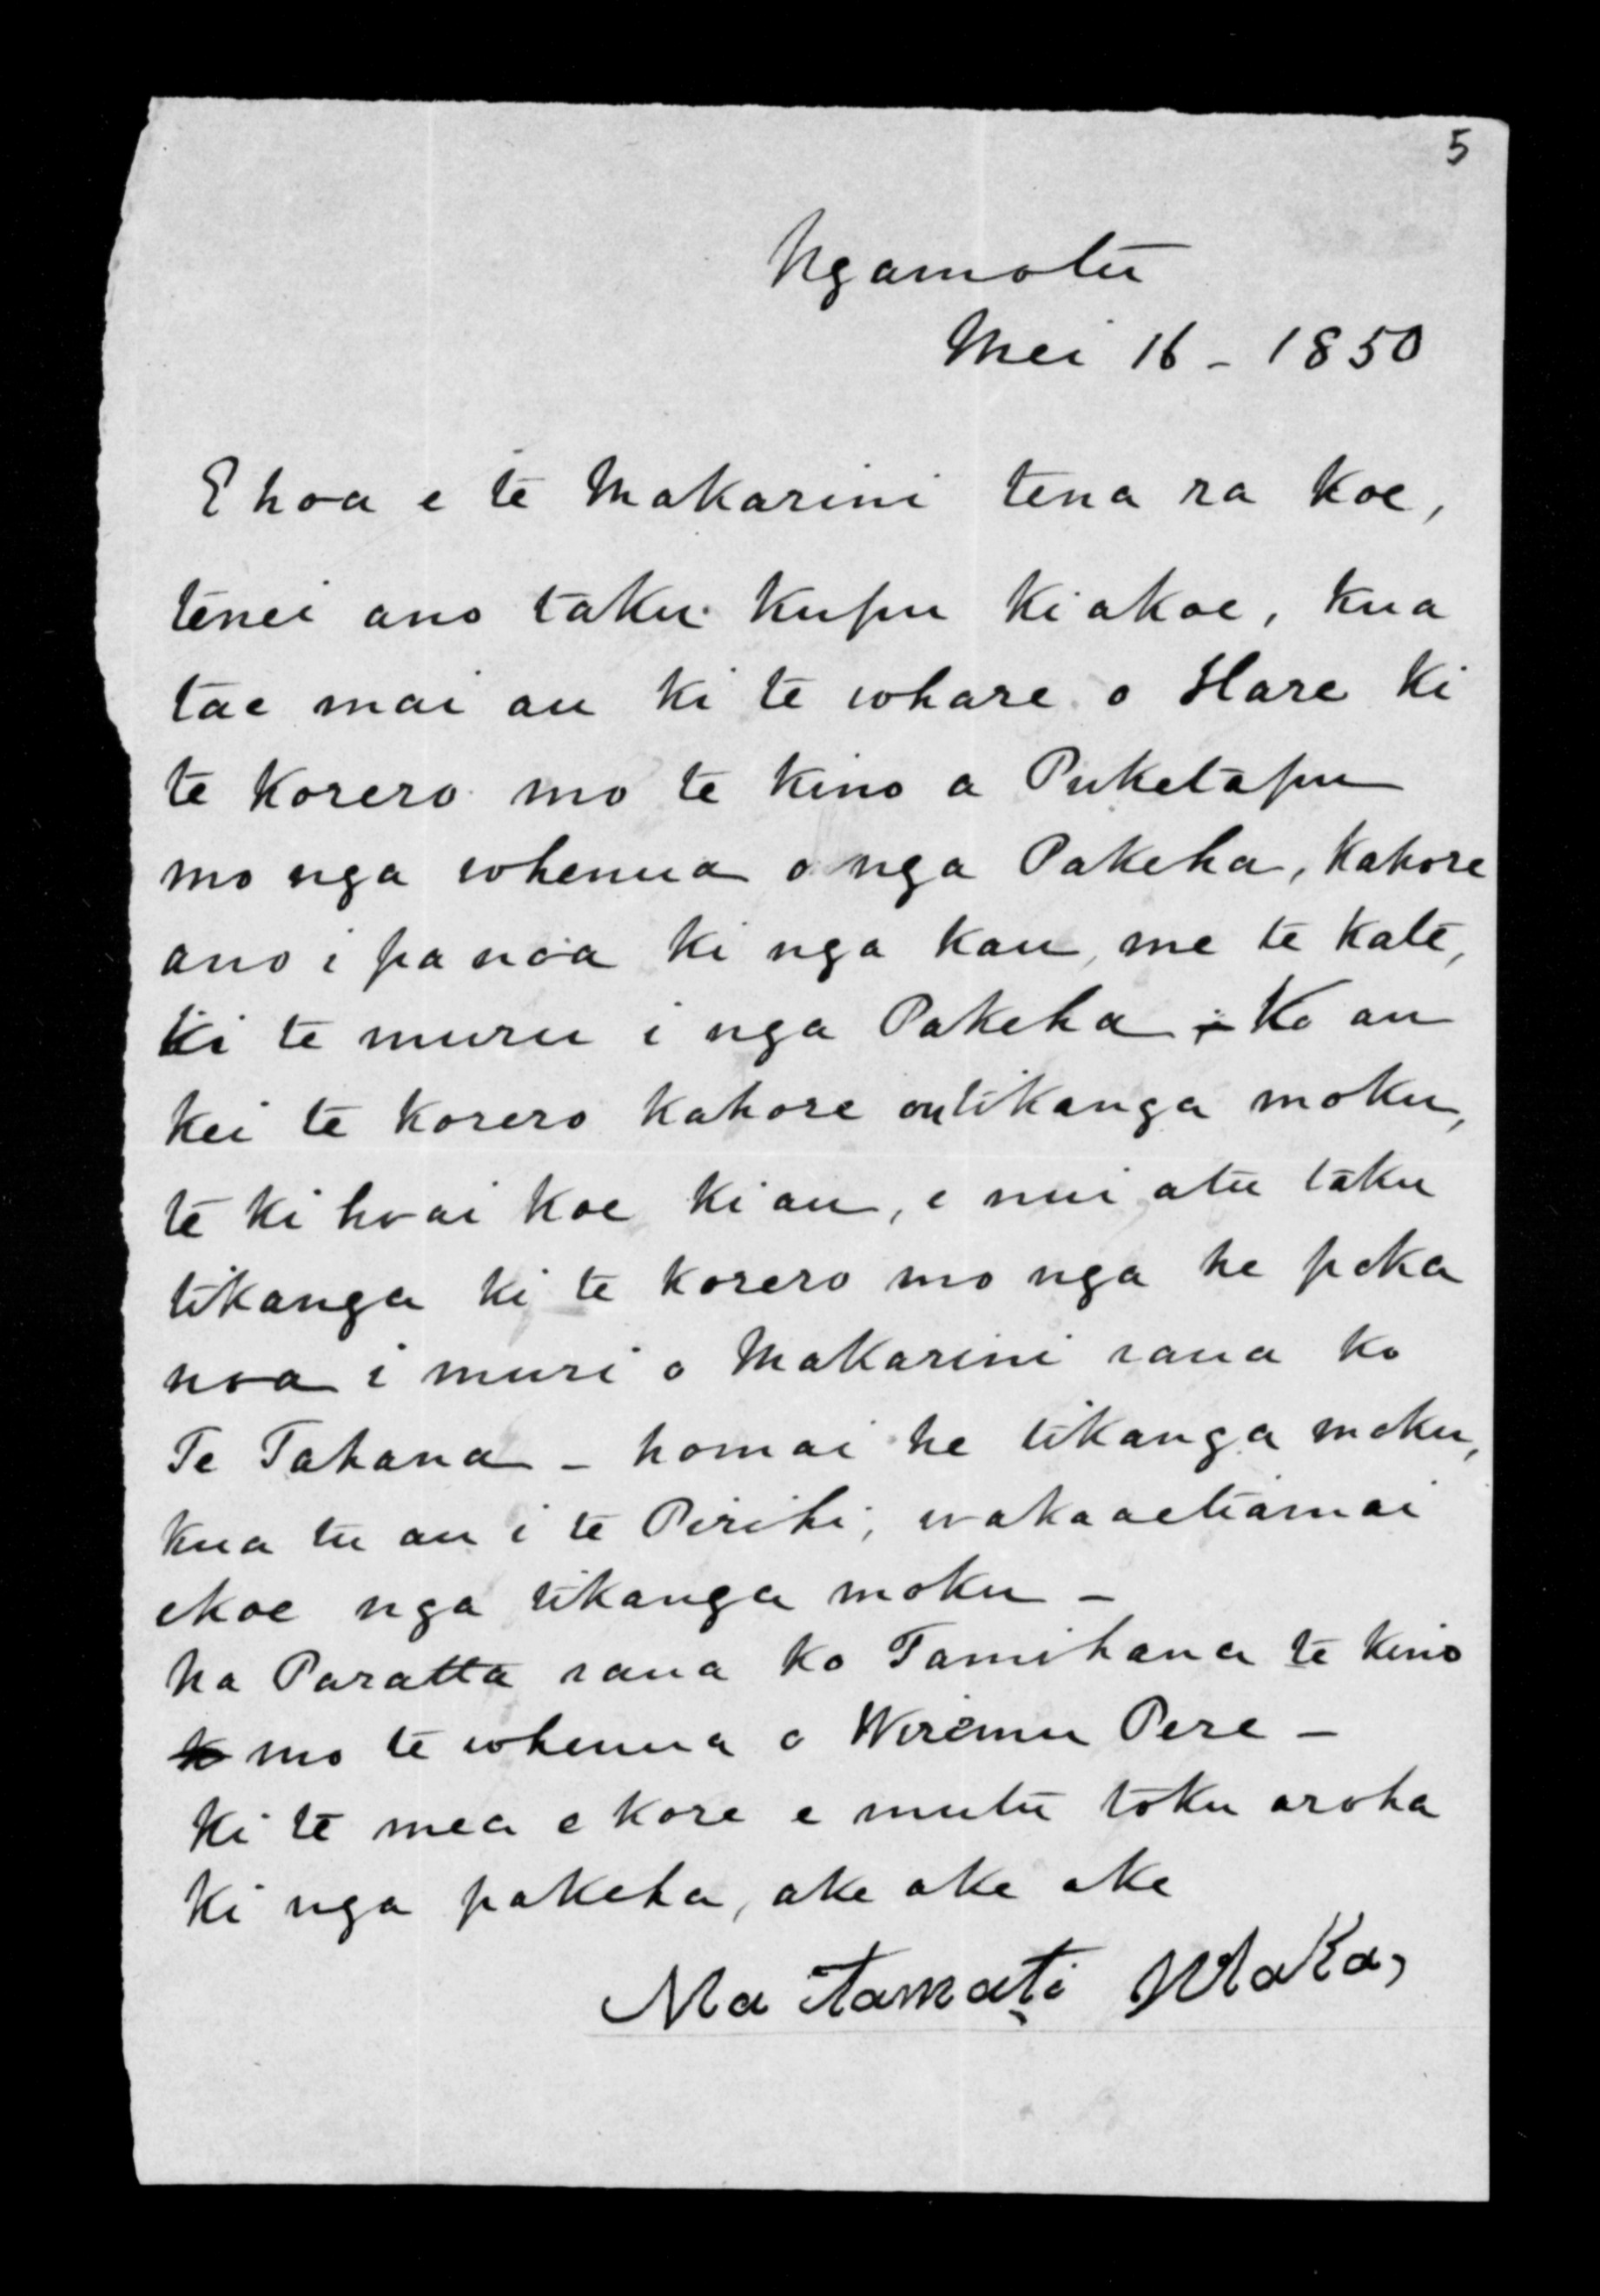 5
Ngamotu
Mei 16 - 1850
E hoa e te Makarini tena ra koe,
tenei ano taku kupu kiakoe, kua
tae mai au ki te whare o Hare ki
te korero mo te kino a Puketapu
mo nga whenua o nga Pakeha, kahore
ano i pa noa ki nga kau, me te kate,
ki te muru i nga Pakeha - Ko au
kei te korero kahore on tikanga moku,
te ki hoai koe kiau, e nui atu taku
tikanga ki te korero mo nga he poka
noa i muri o Makarini raua ko
Te Tahana - homai he tikanga moku,
kua tu au i te Pirihi, wakaaetiamai
ekoe nga tikanga moku -
na Paratta raua ko Tamihana te kino
mo te whenua o Wiremu Pere -
Ki te mea e kore e mutu toku aroha
ki nga pakeha, ake ake ake
Na Tamati Waka,